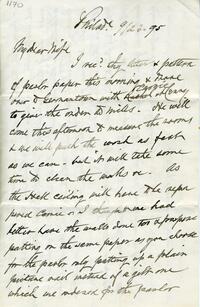 1170
Philada. 9/20. 95
My dear Wife
I rec'd thy letter & pattern
of parlor paper this morning & have
over to Germantown with
to give the order to Mills. He will
come this afternoon to measure the rooms
& we will push the work as fast
as we can - but it will take some
time to clean the walls &c. As
the Hall ceiling will have to be repa
pered Carrie & I thought we had
better have the walls done too & propose
putting on the same paper as you chose
for the parlor only putting up a plain
picture rail instead of a gilt one
which we ordered for the parlor